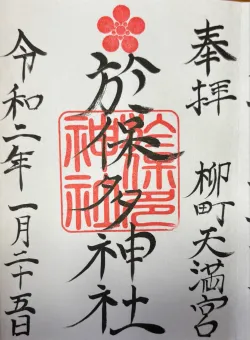 奉拝
柳町天満宮
於保多神社
於保多神社
令和二年一月二十五日